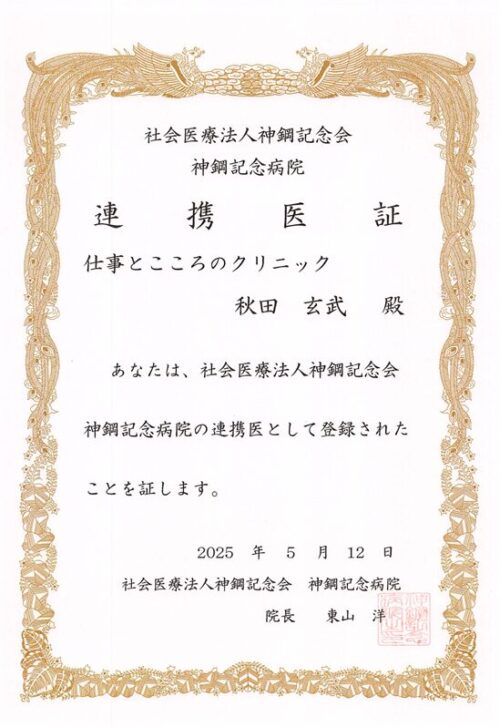 社会医療法人神鋼記念会
神鋼記念病院
連携医証
仕事とこころのクリニック
秋田 玄武 殿
あなたは、社会医療法人神鋼記念会
神鋼記念病院の連携医として登録された
ことを証します。
2025 年 5 月 12 日
社会医療法人神鋼記念会 神鋼記念病院
院長 東山 洋